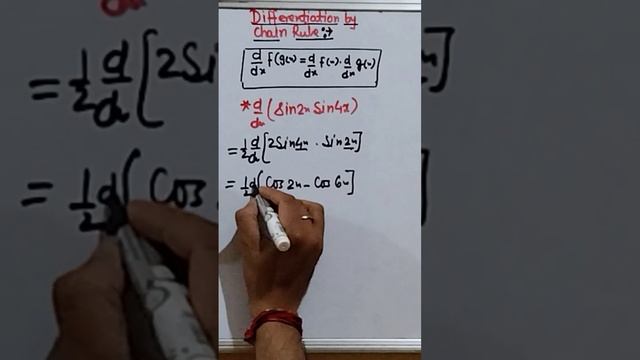 Differentiation by
Chain Rule :→
d/dx f(g(x)) = d/dx f(x) · d/dx g(x)
* d/dx (Sin2x Sin4x)
= 1/2 d/dx [2Sin4x · Sin2x]
= 1/2 d [Cos2x - Cos6x]